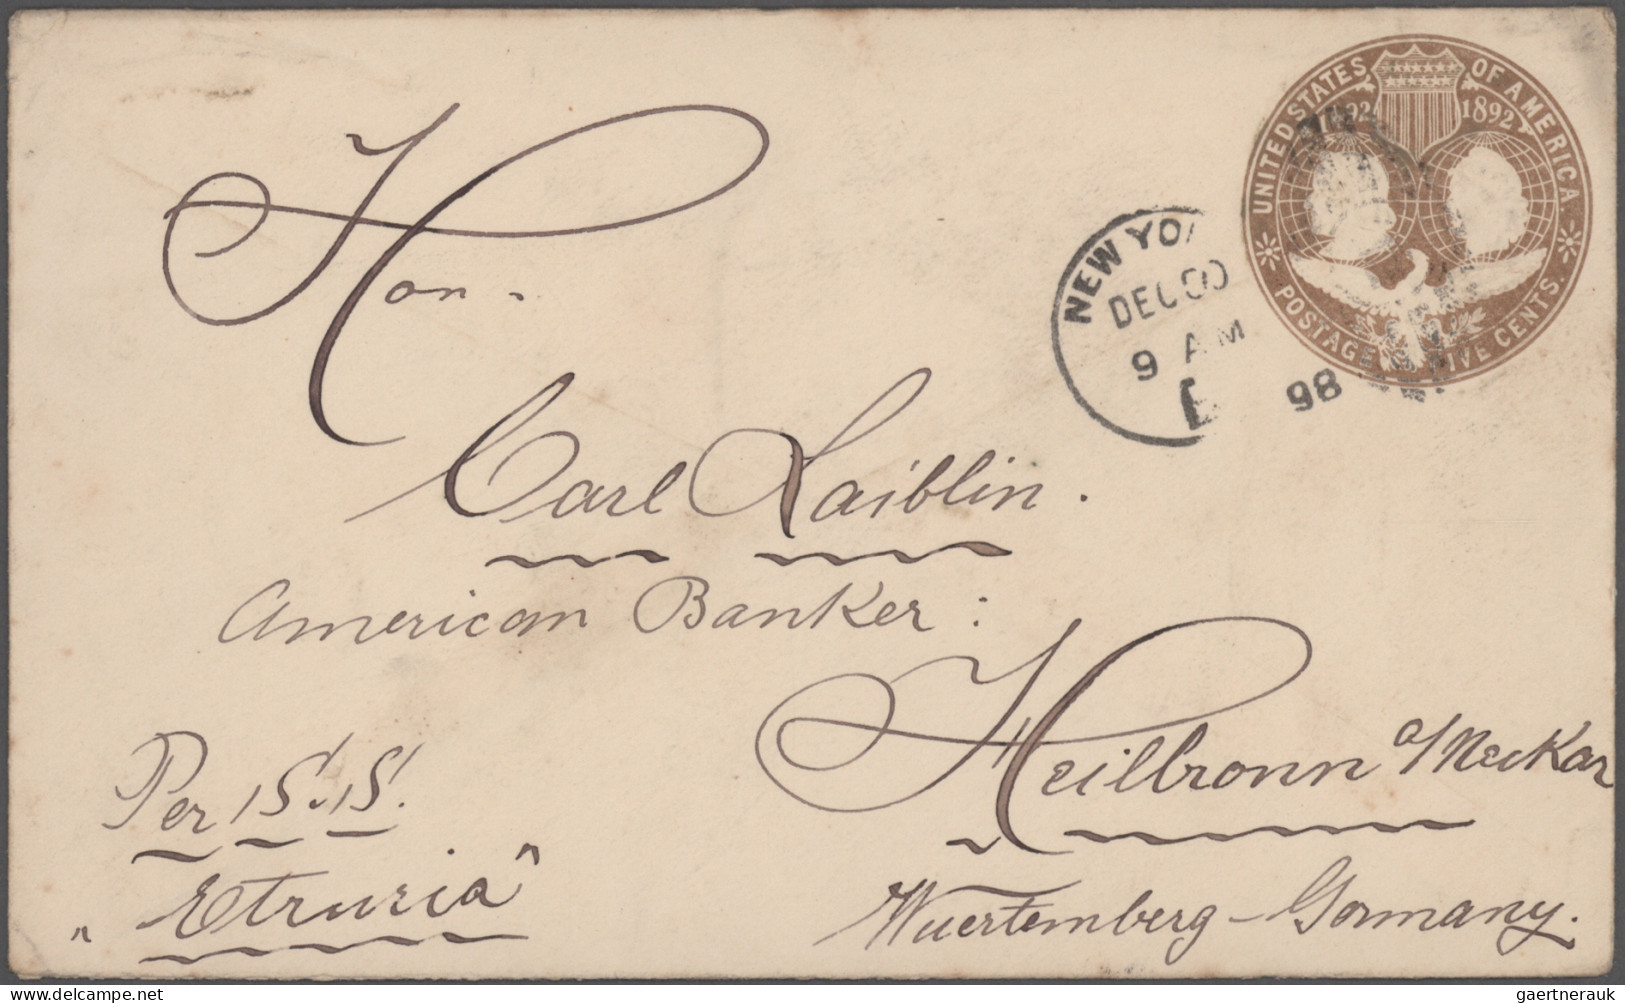 UNITED STATES OF AMERICA
1892
POSTAGE FIVE CENTS.
NEW YO
DEC
9 AM
98
Hon.
Carl Laiblin.
American Banker:
Heilbronn a/Neckar
Wuertemberg – Germany.
Per S.S.
"Etruria"
gaertnerauk